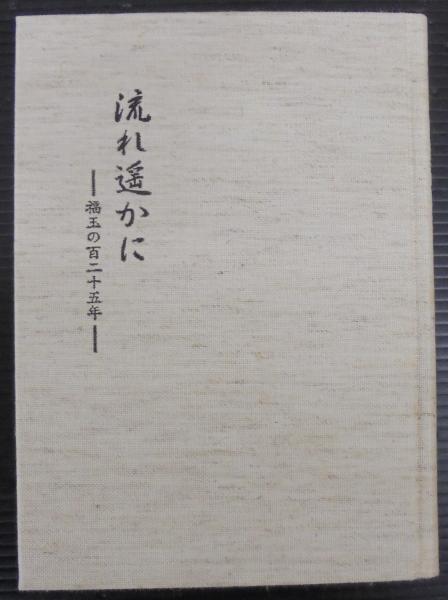 流れ遥かに
―福玉の百二十五年―